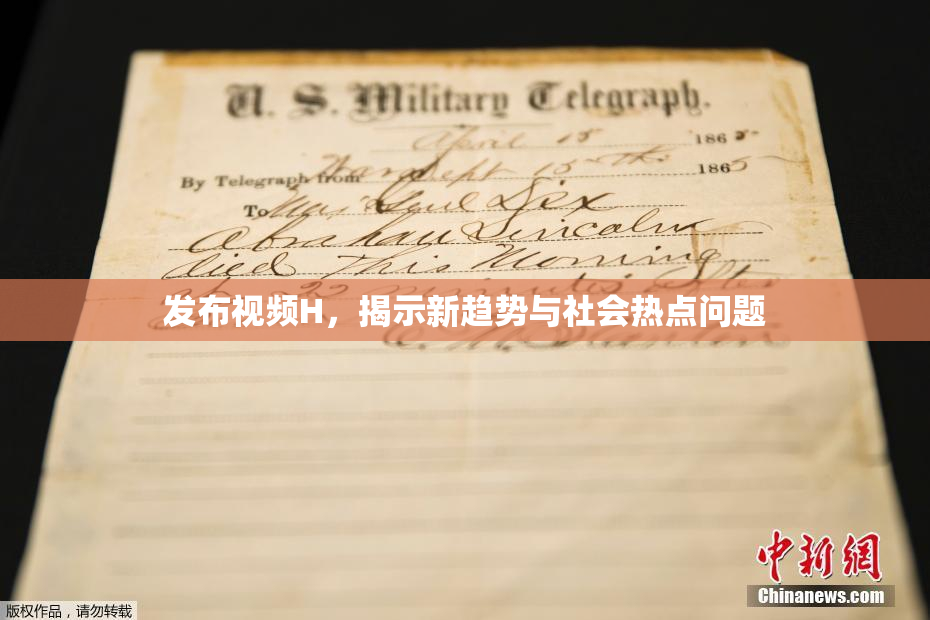 U. S. Military Telegraph.
April 15 1865
By Telegraph from War Dept 15th 1865
To Maj Genl Dix
Abraham Lincoln
died This Morning
22 minutes after
发布视频H，揭示新趋势与社会热点问题
中新网
Chinanews.com
版权作品，请勿转载